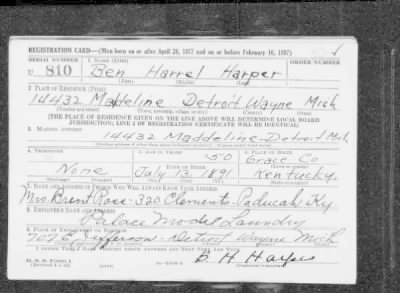 REGISTRATION CARD—(Men born on or after April 28, 1877 and on or before February 16, 1897)
SERIAL NUMBER 1. NAME (Print) ORDER NUMBER
U 810 Ben Harrel Harper
(First) (Middle) (Last)
2. PLACE OF RESIDENCE (Print)
14432 Maddeline Detroit Wayne Mich
(Number and street) (Town, township, village, or city) (County) (State)
[THE PLACE OF RESIDENCE GIVEN ON THE LINE ABOVE WILL DETERMINE LOCAL BOARD
JURISDICTION; LINE 2 OF REGISTRATION CERTIFICATE WILL BE IDENTICAL]
3. MAILING ADDRESS
14432 Maddeline-Detroit Mich
4. TELEPHONE 5. AGE IN YEARS 6. PLACE OF BIRTH
50 Grace Co
DATE OF BIRTH (Town or county)
None July 13 1891 Kentucky
7. NAME AND ADDRESS OF PERSON WHO WILL ALWAYS KNOW YOUR ADDRESS
Mrs. Brent Ross-320 Clements-Paducah Ky
8. EMPLOYER'S NAME AND ADDRESS
Palace Model Laundry
9. PLACE OF EMPLOYMENT OR BUSINESS
7076 E Jefferson-Detroit Wayne Mich
I AFFIRM THAT I HAVE VERIFIED ABOVE ANSWERS AND THAT THEY ARE TRUE.
D. S. S. Form 1 B H Harper